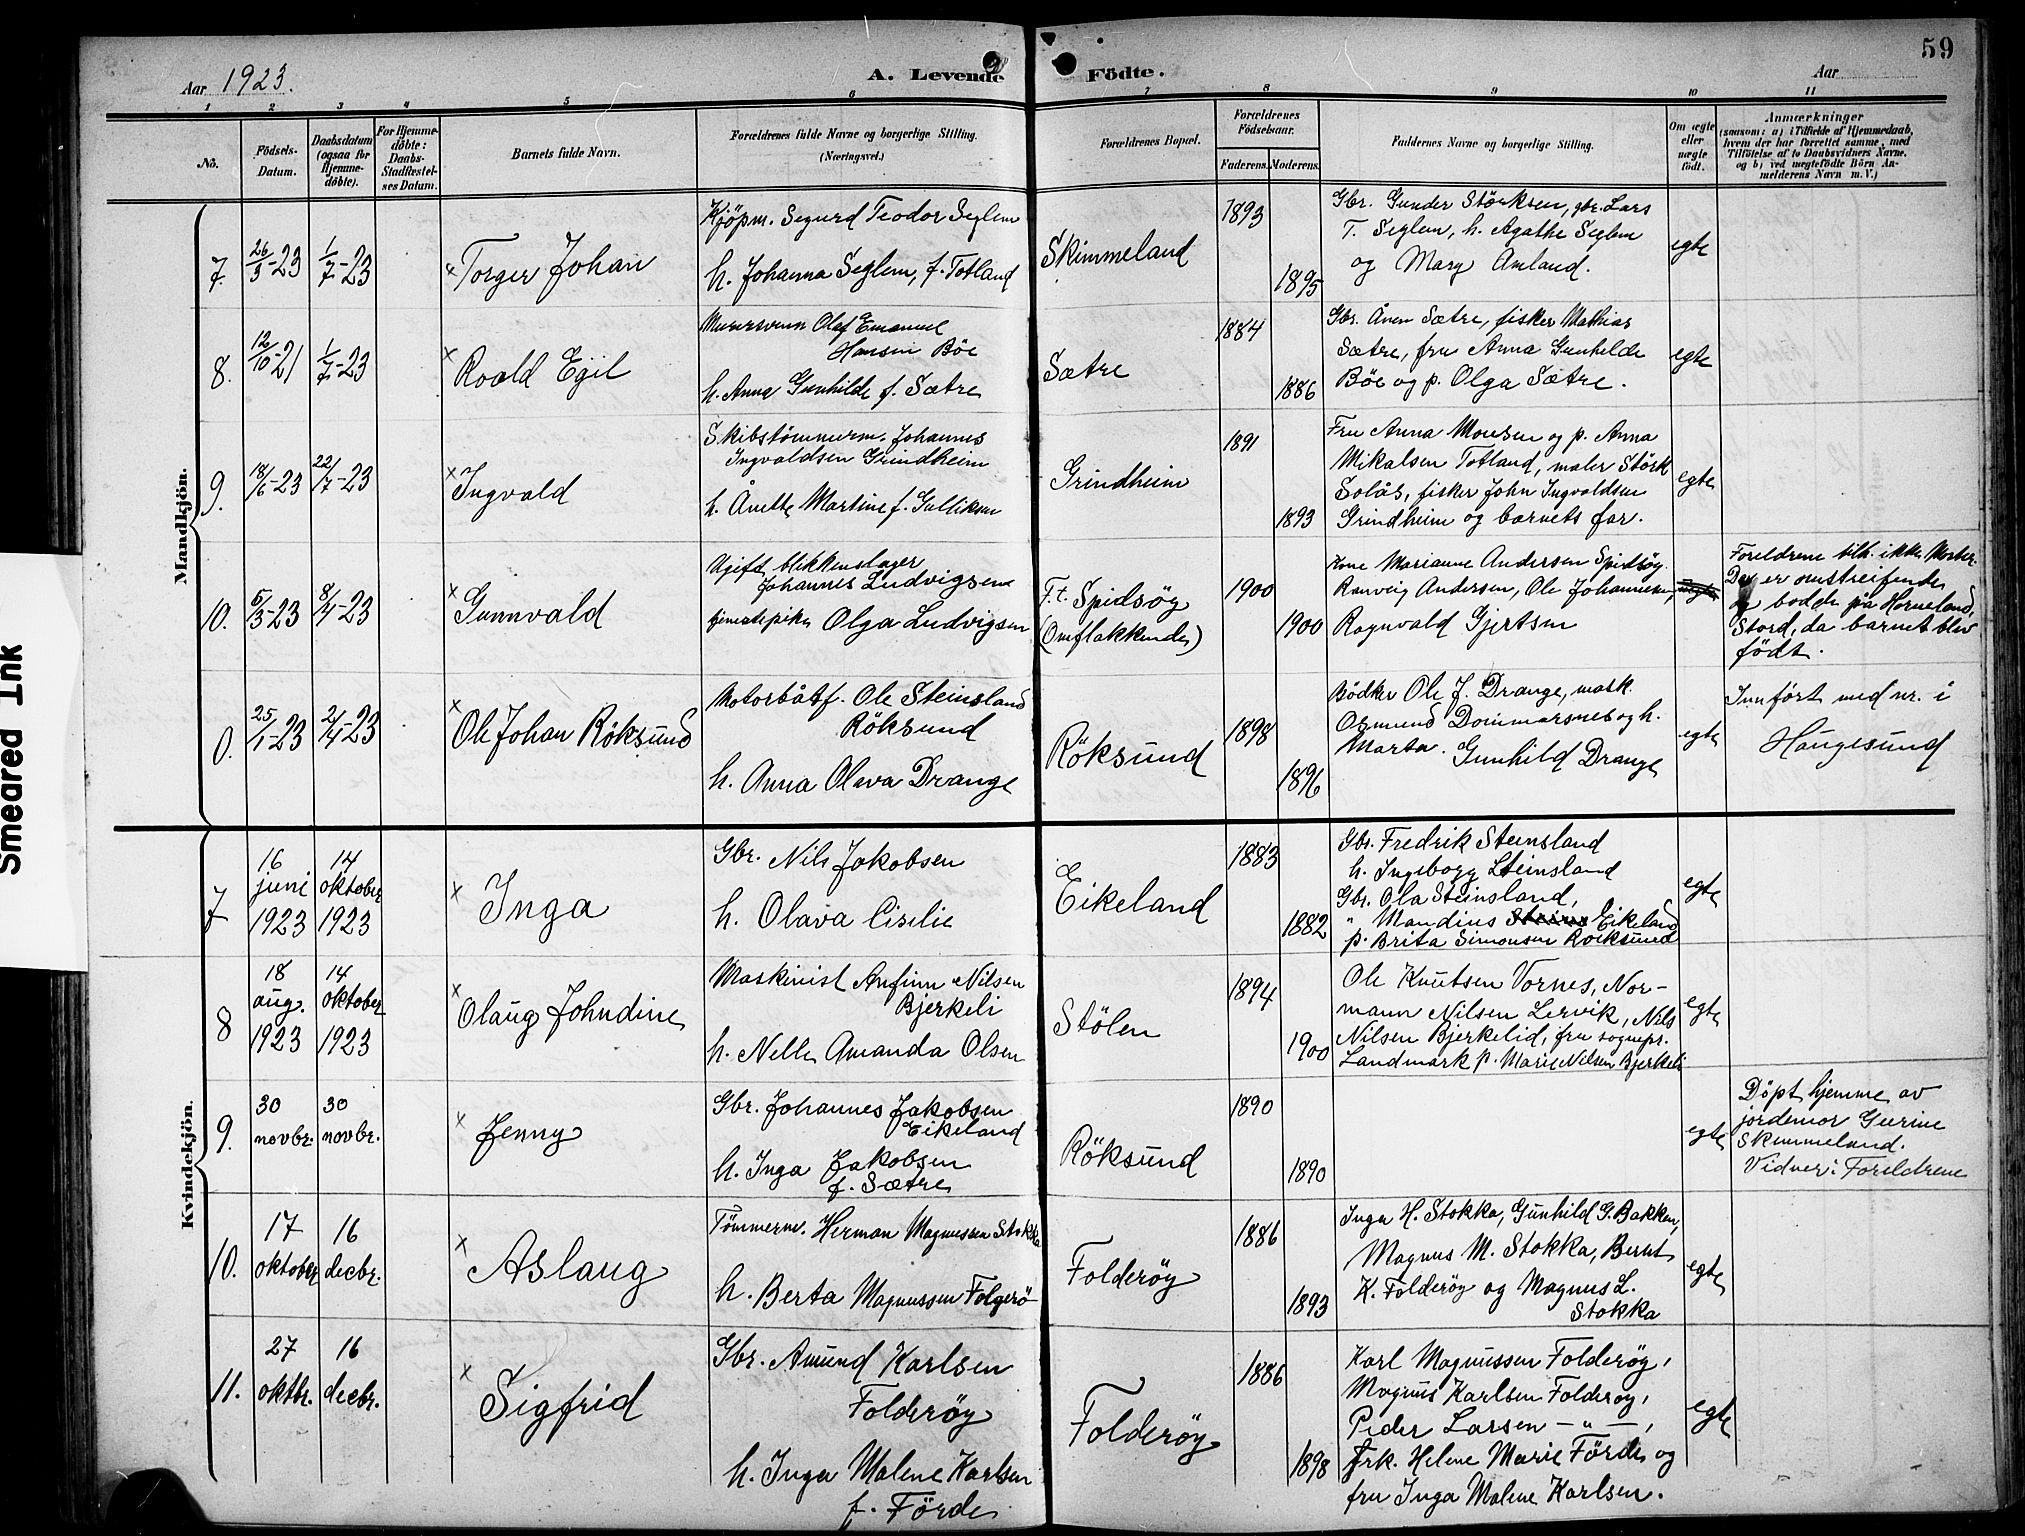 59
Aar 1923.
A. Levende Födte.
Aar
1 2 3 4 5 6 7 8 9 10 11
No.
Födsels-
Datum.
Daabsdatum
(ogsaa for
Hjemme-
döbte).
For Hjemme-
döbte:
Daabs-
Stadfæstel-
ses Datum.
Barnets fulde Navn.
Forældrenes fulde Navne og borgerlige Stilling.
(Næringsvei.)
Forældrenes Bopæl.
Forældrenes
Födselsaar.
Faderens. Moderens.
Faddernes Navne og borgerlige Stilling.
Om ægte
eller
uægte
födt.
Anmærkninger
(saasom: a) i Tilfælde af Hjemmedaab,
hvem der har forrettet samme, med
Tilföielse af to Daabsvidners Navne,
og b) ved uegtefödte Börn An-
melderens Navn m. V.)
Mandkjön.
7. 26/5-23 1/7-23
× Torger Johan
Kjöpm. Segurd Teodor Seglem
h. Johanna Seglem, f. Totland
Skimmeland
1893
1895
Gbr. Gunder Störksen, gbr. Lars
T. Seglem, h. Agathe Seglem
og Mary Amland.
egte
8. 12/10-21 1/7-23
× Roald Egil
Murersvenn Olaf Emanuel
Hansen Böe
h. Anna Gunhilde f. Sætre
Sætre
1884
1886
Gbr. Ånen Sætre, fisker Mathias
Sætre, fru Anna Gunhilde
Böe og p. Olga Sætre.
egte
9. 18/6-23 22/7-23
× Ingvald
Skibstömmerm. Johannes
Ingvaldsen Grindheim
h. Ånette Martine f. Gulliksen
Grindheim
1891
1893
Fru Anna Monsen og p. Anna
Mikalsen Totland, maler Störk
Solås, fisker John Ingvaldsen
Grindheim og barnets far.
egte
10. 5/3-23 8/4-23
× Gunnvald
Ugift blikkenslager
Johannes Ludvigsen
tjenestepike Olga Ludvigsen
F.t. Spidsöy
(Omflakkende)
1900
1900
Kone Marianne Andersen Spidsöy
Ranveig Andersen, Ole Johannesen,
Ragnvald Gjertsen
Foreldrene tilh. ikke Moster.
De er omstreifende
og bodde på Horneland,
Stord, da barnet blev
födt.
0. 25/1-23 2/4-23
× Ole Johan Röksund
Motorbåtf. Ole Steinsland
Röksund
h. Anna Olava Drange
Röksund
1898
1896
Bödker Ole J. Drange, mask.
Osmund Dommarsnes og h.
Marta. Gunhild Drange
egte
Innfört med nr. i
Haugesund
Kvindekjön.
7
16
juni
1923
14
oktober
1923
× Inga
Gbr. Nils Jakobsen
h. Olava Cisilie
Eikeland
1883
1882
Gbr. Fredrik Steinsland
h. Ingeborg Steinsland
Gbr. Ola Steinsland,
" Mandius Eikeland
p. Brita Simonsen Röeksund
egte
8
18
aug.
1923
14
oktober
1923
× Olaug Johndine
Maskinist Anfinn Nilsen
Bjerkeli
h. Nelle Amanda Olsen
Stölen
1894
1900
Ole Knutsen Vornes, Nor-
mann Nilsen Lervik, Nils
Nilsen Bjerkelid, fru sognepr.
Landmark p. Marie Nilsen Bjerkeli
egte
9.
30
novbr.
30
novbr.
× Jenny
Gbr. Johannes Jakobsen
Eikeland
h. Inga Jakobsen
f. Sætre
Röksund
1890
1890
egte
Döpt hjemme av
jordemor Gurine
Skimmeland.
Vidner: Foreldrene
10.
17
oktober
16
decbr.
× Aslaug
Tömmerm. Herman Magnussen Stokka
h. Berta Magnussen Folgerö
Folderöy
1886
1893
Inga H. Stokka, Gunhild G. Bakken,
Magnus M. Stokka, Bernt
K. Folderöy og Magnus L.
Stokka
egte
11.
27
oktbr.
16
decbr.
× Sigfrid
Gbr. Amund Karlsen
Folderöy
h. Inga Malene Karlsen
f. Förde
Folderöy
1886
1898
Karl Magnussen Folderöy,
Magnus Karlsen Folderöy,
Peder Larsen — " —,
Frk. Helene Marie Förde og
fru Inga Malene Karlsen.
egte
Smeared Ink